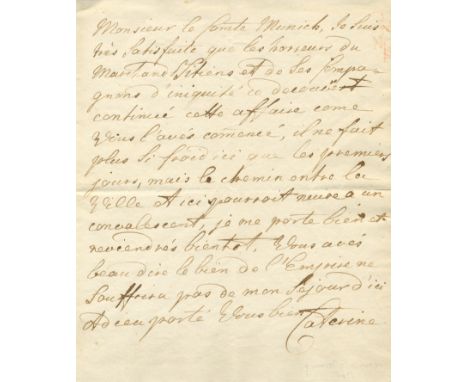 Monsieur le Comte Munich, Je suis
très satisfaite que les horreurs du
Marchand et de ses Compa-
gnons d'iniquité se decouvrent
continué cette affaire come
Vous l'avés comencé, il ne fait
plus si froid ici que les premiers
jours, mais le chemin entre la
Ville et ici pourroit nuire a un
convalescent, je me porte bien et
reviendrés bientot, Vous avés
beau dire le bien de l'Empire ne
Souffrira pas de mon Sejour d'ici
Adieu porté Vous bien
Caterine